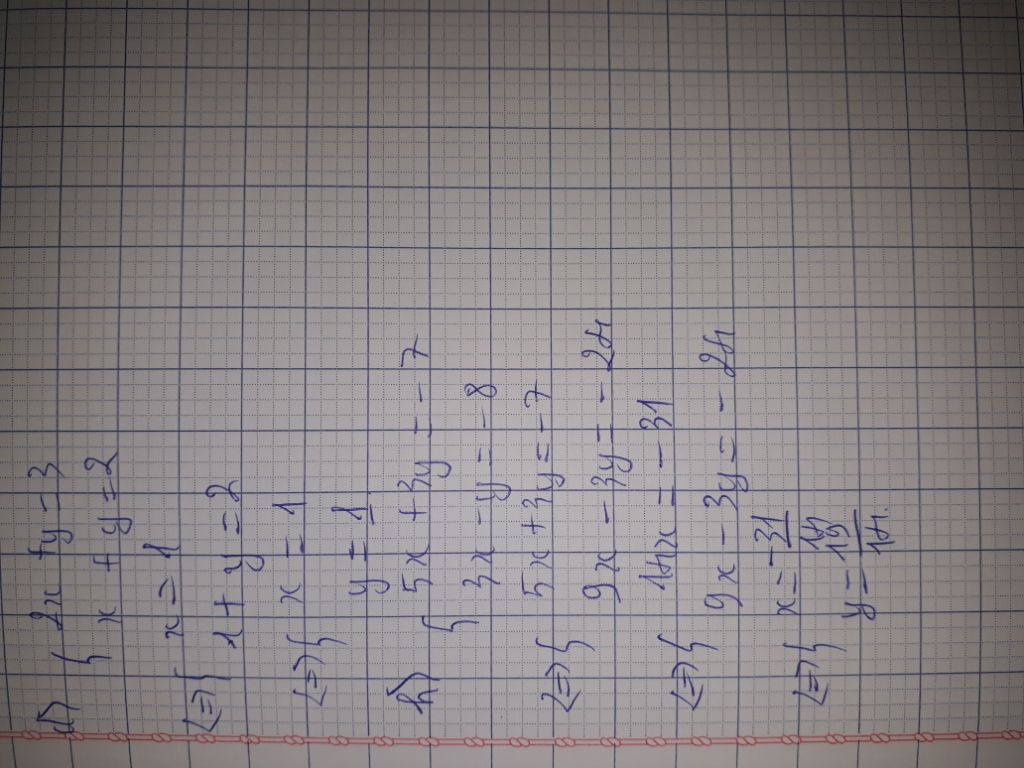 a) { 2x + y = 3
x + y = 2
<=> { x = 1
1 + y = 2
<=> { x = 1
y = 1
b) { 5x + 3y = -7
3x - y = -8
<=> { 5x + 3y = -7
9x - 3y = -24
<=> { 14x = -31
9x - 3y = -24
<=> { x = -31/14
y = 19/14